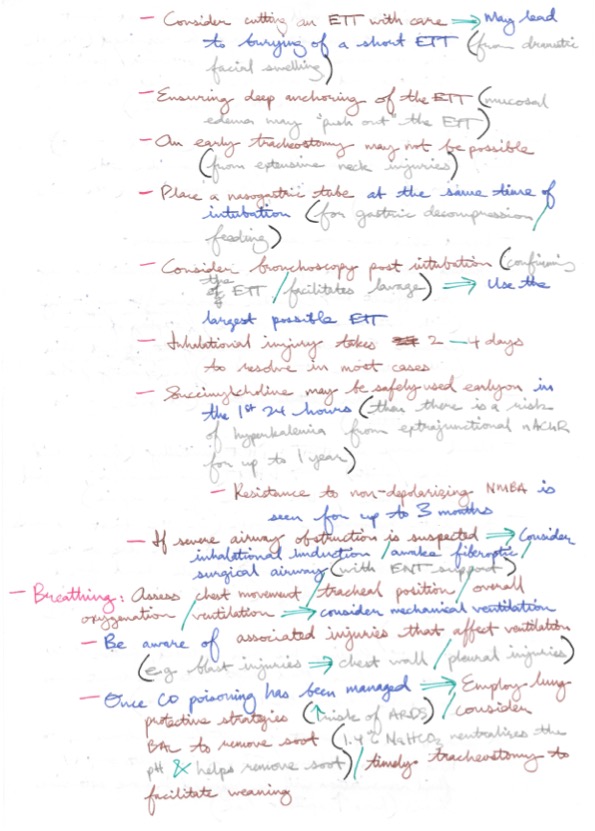 – Consider cutting an ETT with care ⇒ May lead
to burying of a short ETT (from dramatic
facial swelling)
– Ensuring deep anchoring of the ETT (mucosal
edema may "push out" the ETT)
– An early tracheostomy may not be possible
(from extensive neck injuries)
– Place a nasogastric tube at the same time of
intubation (for gastric decompression /
feeding)
– Consider bronchoscopy post intubation (confirms
the
ETT / facilitates lavage) ⇒ Use the
largest possible ETT
– Inhalational injury takes 2 – 4 days
to resolve in most cases
– Succinylcholine may be safely used early on in
the 1st 24 hours (then there is a risk
of hyperkalemia from extrajunctional nAChR
for up to 1 year)
– Resistance to non-depolarizing NMBA is
seen for up to 3 months
– If severe airway obstruction is suspected ⇒ Consider
inhalational induction / awake fiberoptic /
surgical airway (with ENT support)
– Breathing: Assess chest movement / tracheal position / overall
oxygenation / ventilation ⇒ consider mechanical ventilation
– Be aware of associated injuries that affect ventilation
(e.g. blast injuries ⇒ chest wall / pleural injuries)
– Once CO poisoning has been managed ⇒ Employ lung
protective strategies (↑ risk of ARDS) / consider
BAL to remove soot (1.4% NaHCO3 neutralizes the
pH & helps remove soot) / timely tracheostomy to
facilitate weaning